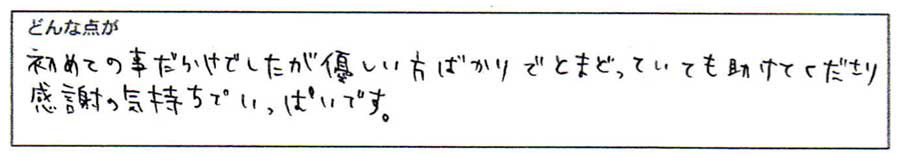 どんな点が
初めての事だらけでしたが優しい方ばかりでとまどっていても助けてくださり
感謝の気持ちでいっぱいです。